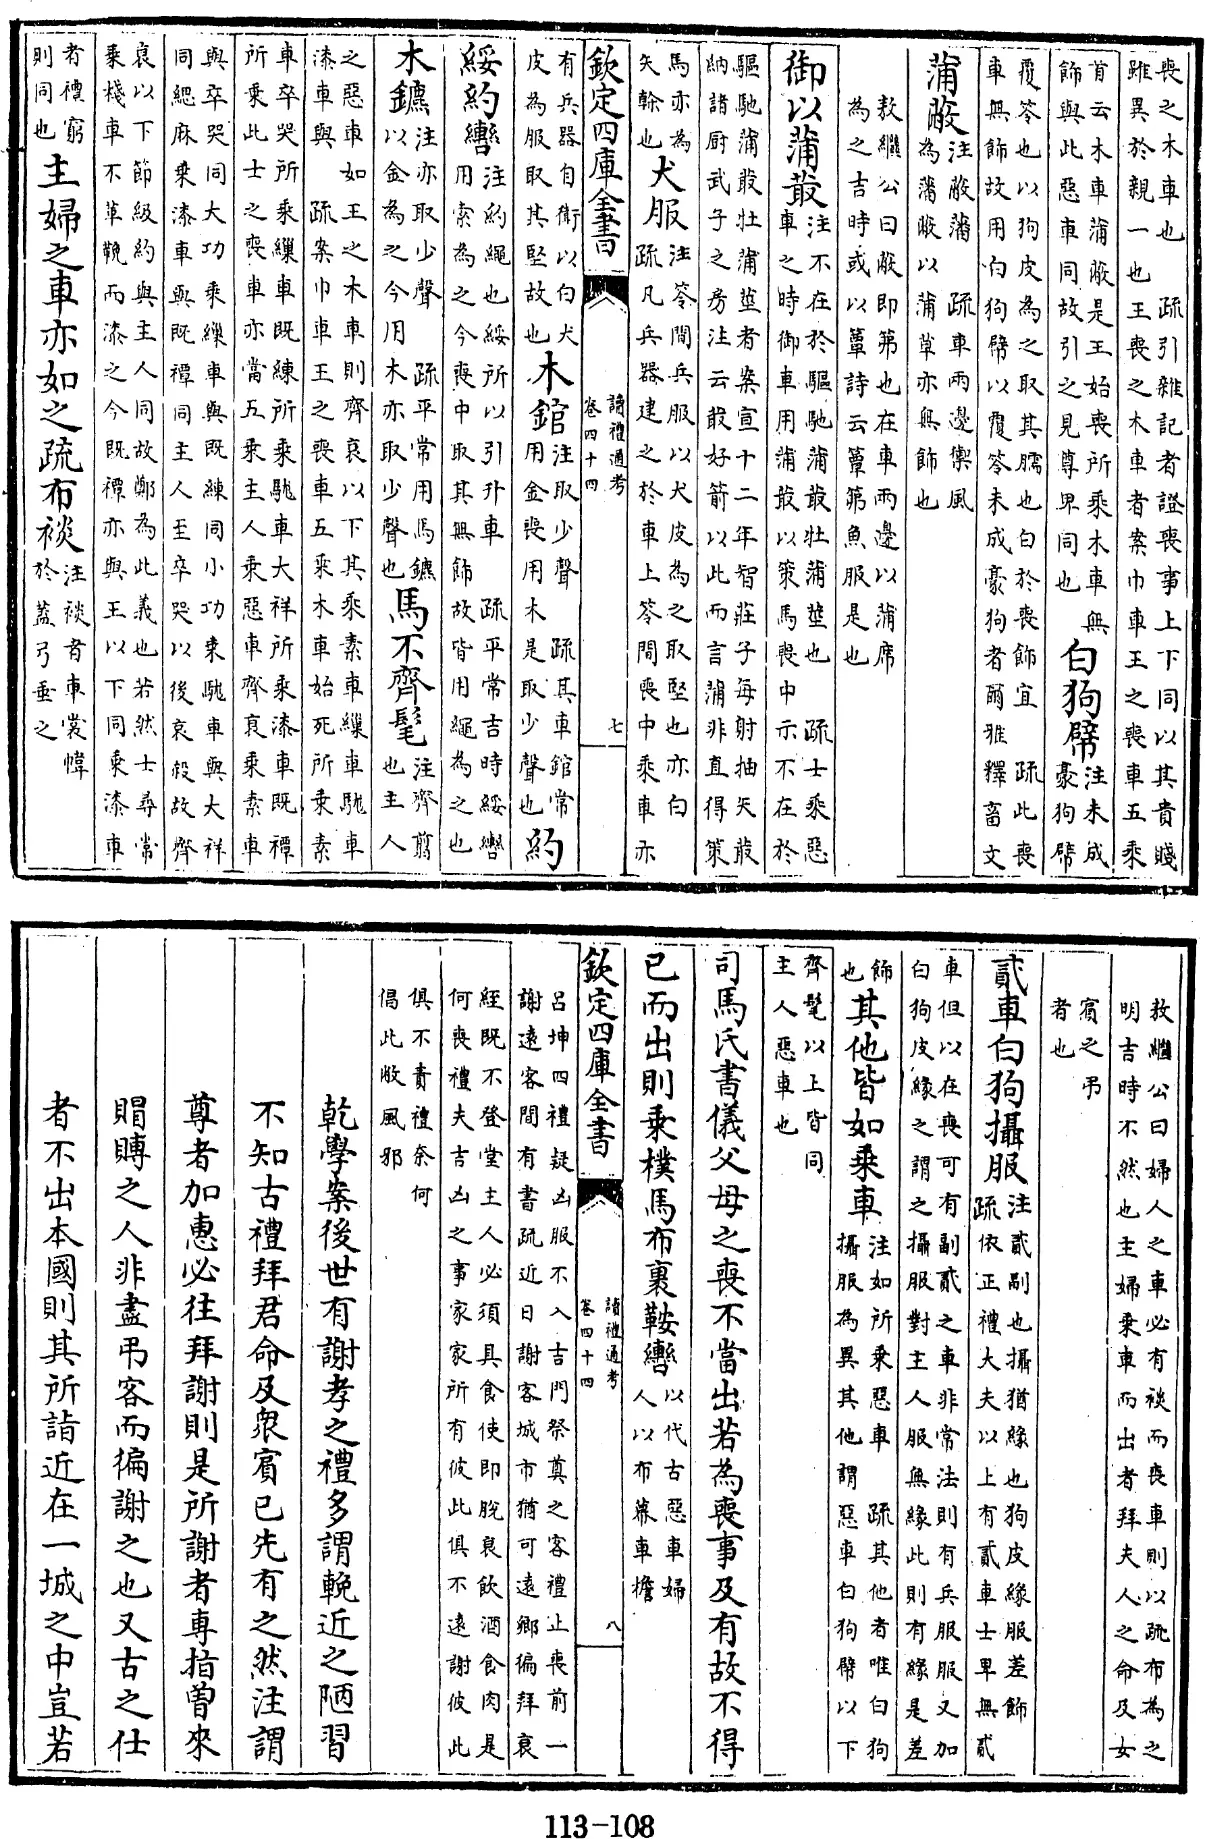 喪之木車也　疏引雜記者證喪事上下同以其貴賤
雖異於親一也王喪之木車者案巾車王之喪車五乘
首云木車蒲蔽是王始喪所乘木車無
飾與此惡車同故引之見尊卑同也
白狗幦
注未成
豪狗幦
覆笭也以狗皮為之取其臑也白於喪飾宜　疏此喪
車無飾故用白狗幦以覆笭未成豪狗者爾雅釋畜文
蒲蔽
注蔽藩　疏車兩邊禦風
為藩蔽以蒲草亦無飾也
敖繼公曰蔽即笰也在車兩邊以蒲席
為之吉時或以簟詩云簟笰魚服是也
御以蒲菆
注不在於驅馳蒲菆牡蒲莖也　疏士乘惡
車之時御車用蒲菆以策馬喪中示不在於
驅馳蒲菆牡蒲莖者案宣十二年智莊子每射抽矢菆
納諸厨武子之房注云菆好箭以此而言蒲非直得策
馬亦為
矢幹也
犬服
注笭間兵服以犬皮為之取堅也亦白
疏凡兵器建之於車上笭間喪中乘車亦
欽定四庫全書
讀禮通考
卷四十四
七
有兵器自衛以白犬
皮為服取其堅故也
木錧
注取少聲　疏其車錧常
用金喪用木是取少聲也
約
綏約轡
注約繩也綏所以引升車　疏平常吉時綏轡
用索為之今喪中取其無飾故皆用繩為之也
木鑣
注亦取少聲　疏平常用馬鑣
以金為之今用木亦取少聲也
馬不齊髦
注齊翦
也主人
之惡車如王之木車則齊衰以下其乘素車繅車駹車
漆車與　疏案巾車王之喪車五乘木車始死所乘素
車卒哭所乘繅車既練所乘駹車大祥所乘漆車既禫
所乘此士之喪車亦當五乘主人乘惡車齊衰乘素車
與卒哭同大功乘繅車與既練同小功乘駹車與大祥
同緦麻乘漆車與既禫同主人至卒哭以後哀殺故齊
衰以下節級約與主人同故鄭為此義也若然士尋常
乘棧車不革鞔而漆之今既禫亦與王以下同乘漆車
者禮窮
則同也
主婦之車亦如之疏布裧
注裧者車裳幃
於蓋弓垂之
敖繼公曰婦人之車必有裧而喪車則以疏布為之
明吉時不然也主婦乘車而出者拜夫人之命及女
賓之弔
者也
貳車白狗攝服
注貳副也攝猶緣也狗皮緣服差飾
疏依正禮大夫以上有貳車士卑無貳
車但以在喪可有副貳之車非常法則有兵服服又加
白狗皮緣之謂之攝服對主人服無緣此則有緣是差
飾
也
其他皆如乘車
注如所乘惡車　疏其他者唯白狗
攝服為異其他謂惡車白狗幦以下
齊髦以上皆同
主人惡車也
司馬氏書儀父母之喪不當出若為喪事及有故不得
已而出則乘樸馬布裹鞍轡
以代古惡車婦
人以布幕車檐
欽定四庫全書
讀禮通考
卷四十四
八
呂坤四禮疑凶服不入吉門祭奠之客禮止喪前一
謝遠客間有書疏近日謝客城市猶可遠鄉徧拜衰
絰既不登堂主人必須具食使即脫衰飲酒食肉是
何喪禮夫吉凶之事家家所有彼此俱不遠謝彼此
俱不責禮奈何
倡此敝風邪
乾學案後世有謝孝之禮多謂輓近之陋習
不知古禮拜君命及衆賓已先有之然注謂
尊者加惠必往拜謝則是所謝者專指曾來
賵賻之人非盡弔客而徧謝之也又古之仕
者不出本國則其所詣近在一城之中豈若
113-108